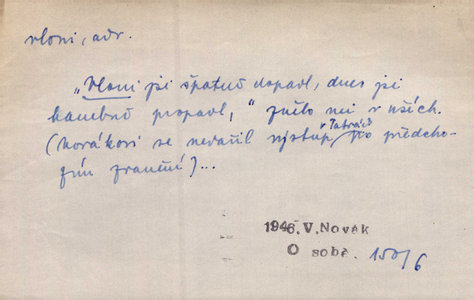 vloni, adv.
„Vloni jsi špatně dopadl, dnes jsi
hanebně propadl,“ znělo mi v uších.
(Novákovi se nedařil výstup v Tatrách po předcho-
zím zranění)...
1946.V.Novák
O sobě. 150/6